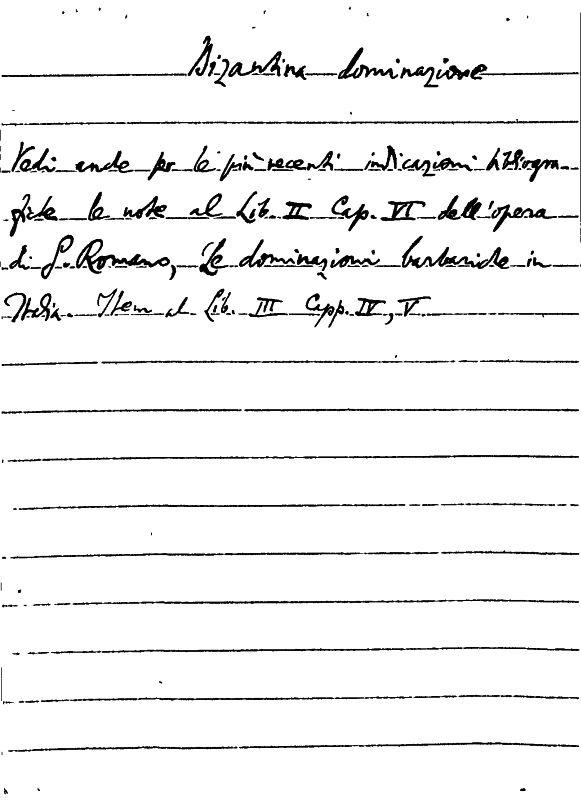 Bizantina dominazione
Vedi anche per le più recenti indicazioni bibliogra
fiche le note al Lib. II Cap. VI dell'opera
di G. Romano, Le dominazioni barbariche in
Italia. Item al Lib. III Capp. IV, V